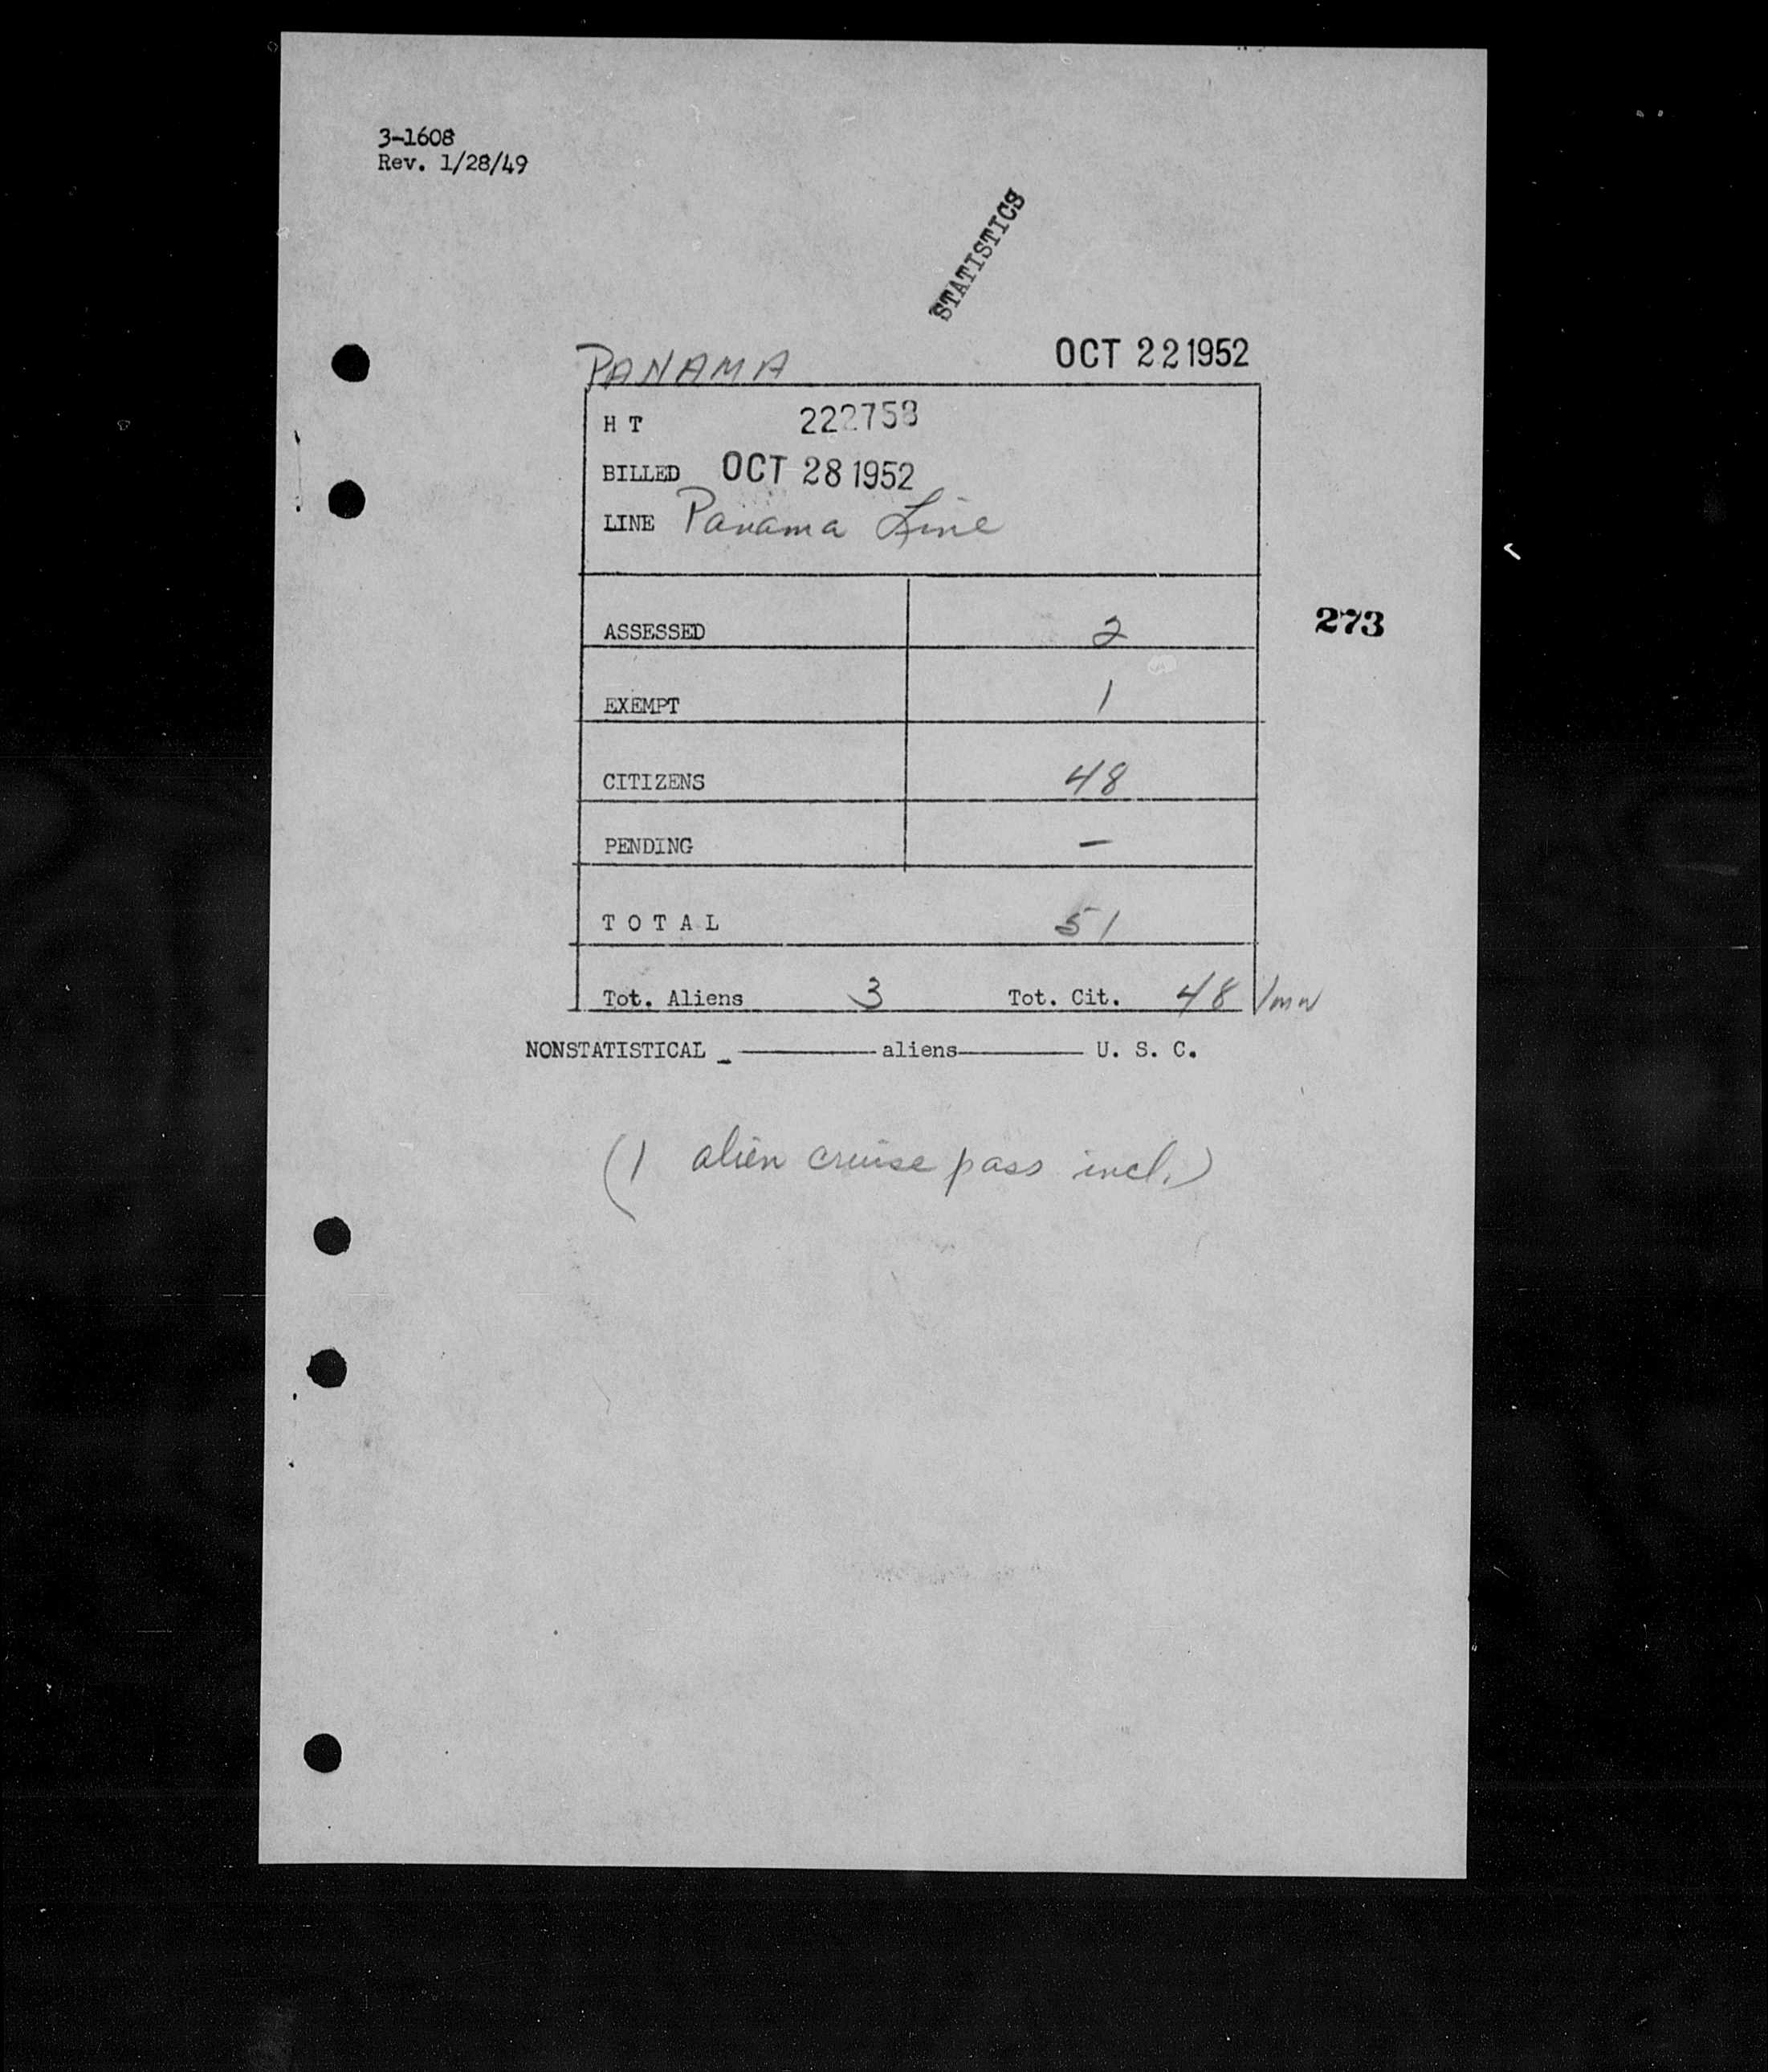 3-1608
Rev. 1/28/49
STATISTICS
PANAMA OCT 22 1952
H T 222758
BILLED OCT 28 1952
LINE Panama Line
273
ASSESSED 2
EXEMPT 1
CITIZENS 48
PENDING —
T O T A L 51
Tot. Aliens 3 Tot. Cit. 48
NONSTATISTICAL _ ———— aliens ———— U. S. C.
(1 alien cruise pass incl.)